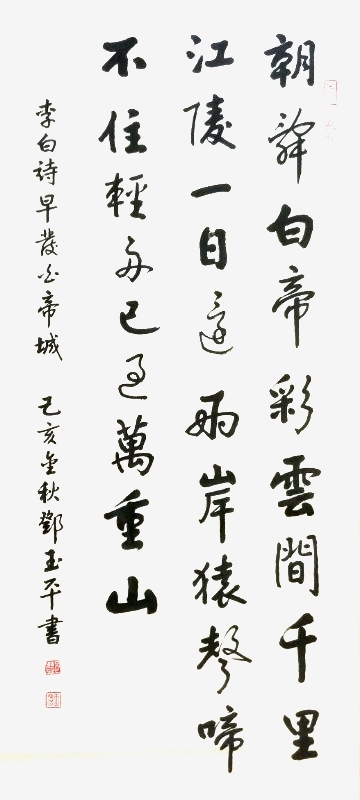 朝辭白帝彩雲間千里
江陵一日還兩岸猿聲啼
不住輕舟已過萬重山
李白詩早發白帝城 己亥金秋鄧玉平書